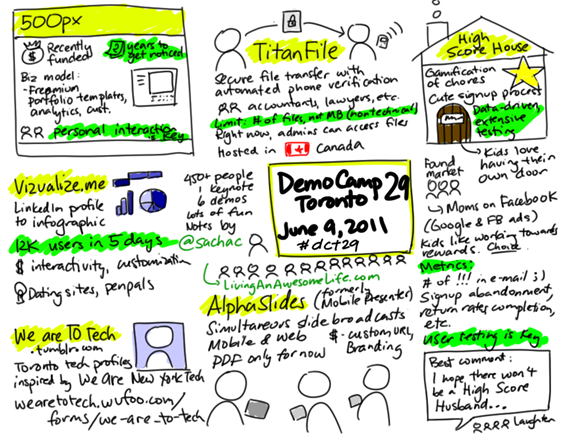 500px
Recently
funded
years to
get noticed
Biz model:
-Freemium
Portfolio templates,
analytics, cust.
personal interaction
is key
TitanFile
Secure file transfer with
automated phone verification
accountants, lawyers, etc.
Limit: # of files, not MB (nontechnical)
Right now, admins can access files
Hosted in Canada
High
Score House
Gamification
of chores
Cute signup process
Data-driven,
extensive
testing
Kids love
having their
own door
Found
market
→ Moms on Facebook
(Google & FB ads)
Kids like working towards
rewards. Choice.
Metrics:
# of !!! in e-mail :)
Signup abandonment,
return rates, completion,
etc.
User testing is key
Best comment:
I hope there won't
be a High Score
Husband...
Laughter
Vizualize.me
LinkedIn profile
to infographic
12K users in 5 days
$ interactivity, customization
Dating sites, penpals
450+ people
1 keynote
6 demos
Lots of fun
Notes by
@sachac
LivingAnAwesomeLife.com
DemoCamp 29
Toronto
June 9, 2011
#dct29
AlphaSlides (formerly
Mobile Presenter)
Simultaneous slide broadcasts
Mobile & web
PDF only for now
$-custom URL,
Branding
We are TO Tech
.tumblr.com
Toronto tech profiles
inspired by We Are New York Tech
wearetotech.wufoo.com/
forms/we-are-to-tech